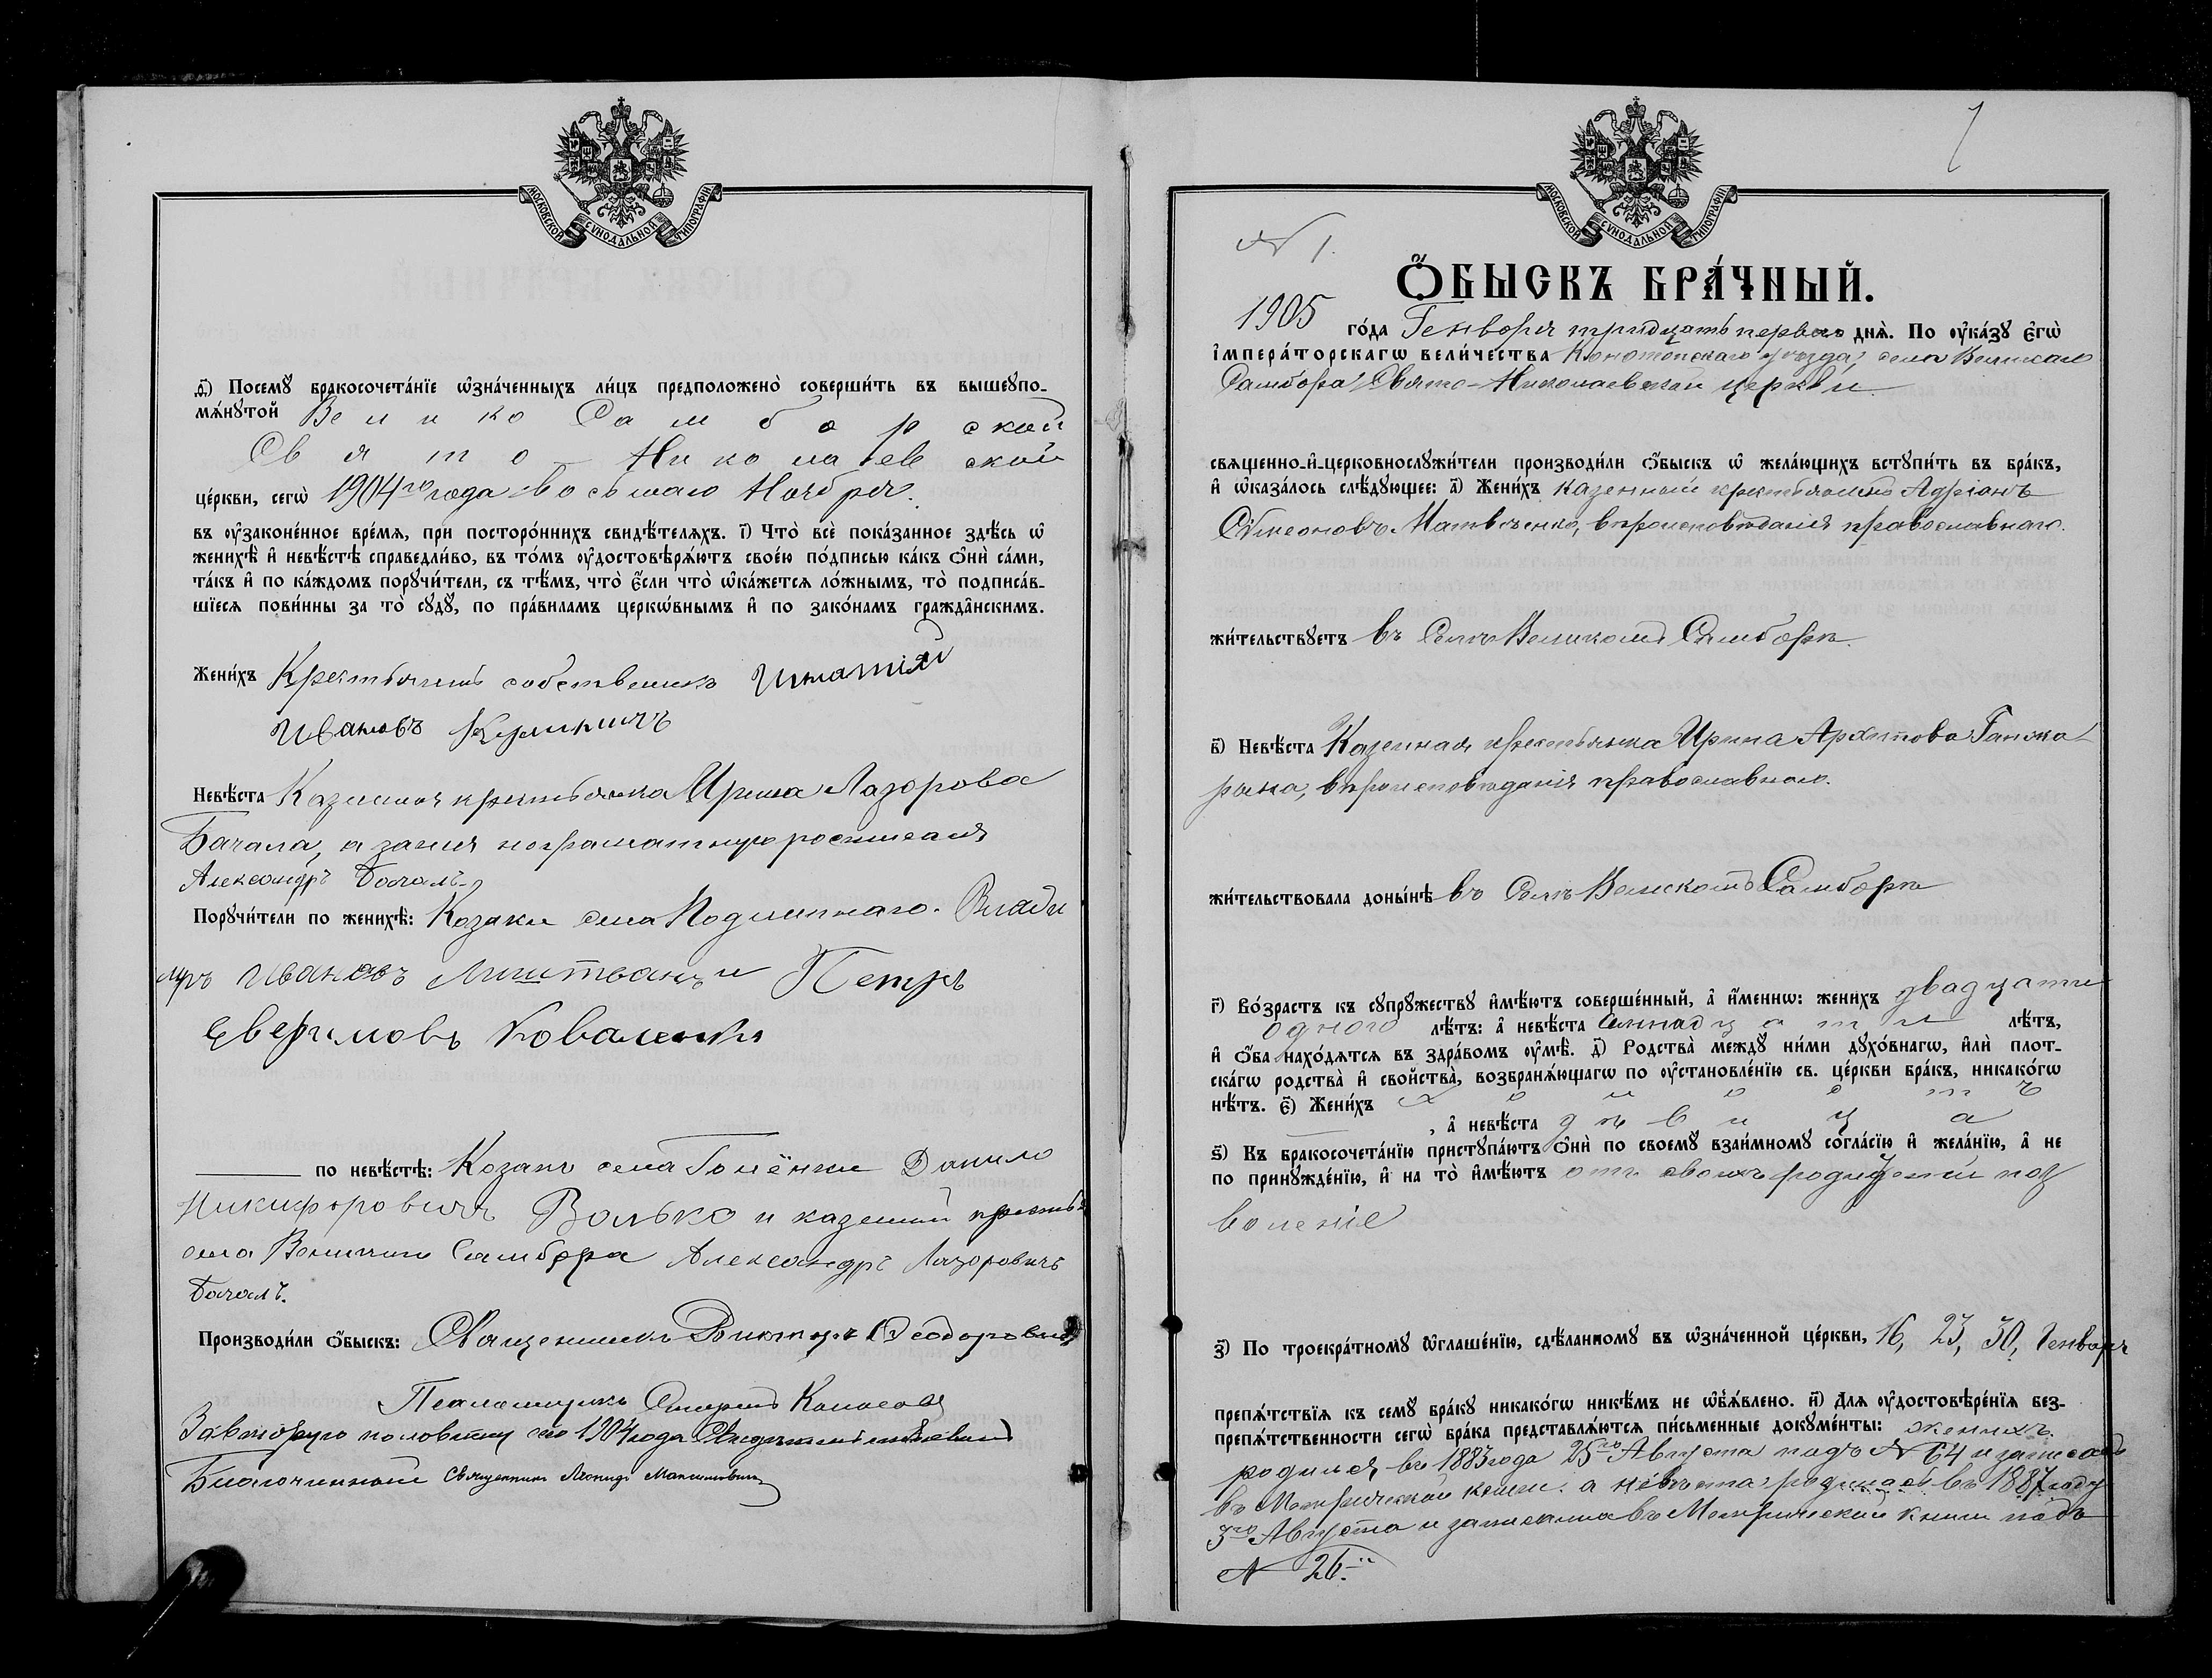 МОСКОВСКОЙ СѴНОДАЛЬНОЙ ТИПОГРАФІИ
ѳ҃) Посемꙋ̀ бракосочета́нїе ѡ҆зна́ченныхъ ли́цъ предположено̀ соверши́ть въ вышеꙋпо-
мѧ́нꙋтой Велико Самборской
Свято-Николаевской
це́ркви, сегѡ̀ 1904го года восьмаго Ноября.
въ ᲂу҆законе́нное вре́мѧ, при посторо́ннихъ свидѣ́телѧхъ. і҃) Что̀ всѐ пока́занное здѣ́сь ѡ҆
женихѣ̀ и҆ невѣ́стѣ справедли́во, въ то́мъ ᲂу҆достовѣрѧ́ютъ свое́ю по́дписью ка́къ ѻ҆нѝ са́ми,
та́къ и҆ по ка́ждомъ порꙋчи́тели, съ тѣ́мъ, что̀ є҆́сли что̀ ѡ҆ка́жетсѧ ло́жнымъ, то̀ подписа́в-
шїесѧ пови́нны за то̀ сꙋдꙋ̀, по пра́виламъ церкѡ́внымъ и҆ по зако́намъ гражда̑нскимъ.
Жени́хъ Крестьянинъ собственникъ Игнатій
Ивановъ
Невѣ́ста Казенная крестьянка Ирина Лазорова
Бачала, а занея неграматную росписался
Александръ Бачалъ.
Порꙋчи́тели по женихѣ̀: Козаки села Подлипнаго. Влади
міръ Ивановъ и Петръ
Коваленко
по невѣ́стѣ: Козакъ села Голёнки Данило
Никифоровичъ Валько и казенный крестья
села Великаго Самбора Александръ Лазоровичъ
Бачалъ.
Производи́ли ѻ҆́быскъ: Священникъ Викторъ Ѳеодоровскій
Псаломщикъ Колосовъ
За вторую половину сего 1904 года свидѣтельствовалъ
Благочинный Священникъ Леонидъ Максимовичъ
МОСКОВСКОЙ СѴНОДАЛЬНОЙ ТИПОГРАФІИ
1
№ 1.
Ѻ҆́БЫСКЪ БРА́ЧНЫЙ.
1905 го́да Генворя тридцать перваго днѧ̀. По ᲂу҆ка́зꙋ є҆гѡ̀
і҆мпера́торскагѡ вели́чества Конотопскаго уѣзда, села Великаго
Самбора Свято-Николаевской церкви
свѧщенно-и҆-церковнослꙋжи́тели производи́ли ѻ҆́быскъ ѡ҆ жела́ющихъ встꙋпи́ть въ бра́къ,
и҆ ѡ҆каза́лось слѣ́дꙋющее: а҃) Жени́хъ казенный крестьянинъ Адріанъ
Сѵмеоновъ Матвѣенко, вѣроисповѣданія православнаго.
жи́тельствꙋетъ въ Селѣ Великомъ Самборѣ.
в҃) Невѣ́ста Казенная крестьянка Ирина Архипова
вѣроисповѣданія православнаго.
жи́тельствовала доны́нѣ въ Селѣ Великомъ Самборѣ
г҃) Во́зрастъ къ сꙋпрꙋ́жествꙋ и҆мѣ́ютъ соверше́нный, а҆ и҆́меннѡ: жени́хъ двадцати
одного лѣ́тъ: а҆ невѣ́ста семнадцати лѣ́тъ,
и҆ ѻ҆́ба нахо́дѧтсѧ въ здра́вомъ ᲂу҆мѣ̀. д҃) Родства̀ междꙋ̀ ни́ми дꙋхо́внагѡ, и҆лѝ плот-
ска́гѡ родства̀ и҆ свойства̀, возбранѧ́ющагѡ по ᲂу҆становле́нїю св. це́ркви бра́къ, никако́гѡ
нѣ́тъ. є҃) Жени́хъ холостъ
, а҆ невѣ́ста дѣвица
ѕ҃) Къ бракосочета́нїю пристꙋпа́ютъ ѻ҆нѝ по своемꙋ̀ взаи́мномꙋ согла́сїю и҆ жела́нїю, а҆ не
по принꙋжде́нїю, и҆ на то̀ и҆мѣ́ютъ отъ своихъ родителей поз
воленіе
з҃) По троекра́тномꙋ ѡ҆глаше́нїю, сдѣ́ланномꙋ въ ѡ҆зна́ченной це́ркви, 16, 23, 30, Генваря
препѧ́тствїѧ къ семꙋ̀ бра́кꙋ никако́гѡ никѣ́мъ не ѡ҆б̾ѧ́влено. и҃) Длѧ̀ ᲂу҆достовѣре́нїѧ без-
препѧ́тственности сегѡ̀ бра́ка представлѧ́ютсѧ пи́сьменные докꙋме́нты: женихъ
родился въ 1883 года 25го Августа подъ № 64 и записанъ
въ Метрической книги. а невѣста родилась въ 1887 году
3го Августа и записанна въ Метрической книги подъ
№ 26.